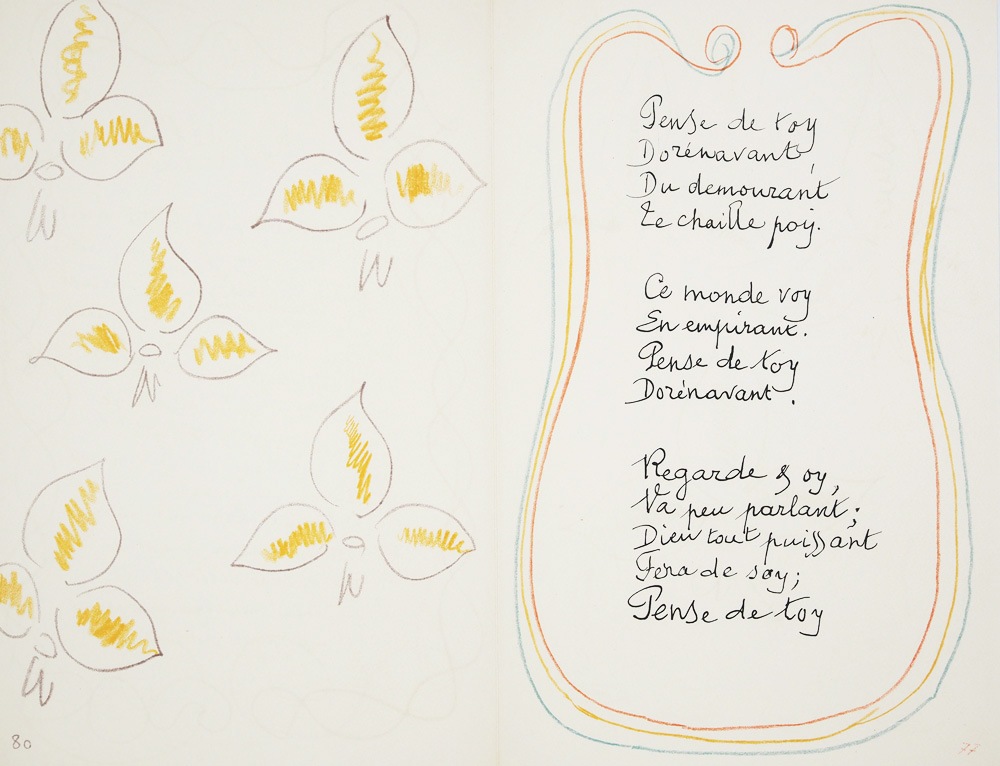 Pense de toy
Dorénavant,
Du demourant
Te chaille poy.
Ce monde voy
En empirant.
Pense de toy
Dorénavant.
Regarde & oy,
Va peu parlant;
Dieu tout puissant
Fera de soy;
Pense de toy
80
77